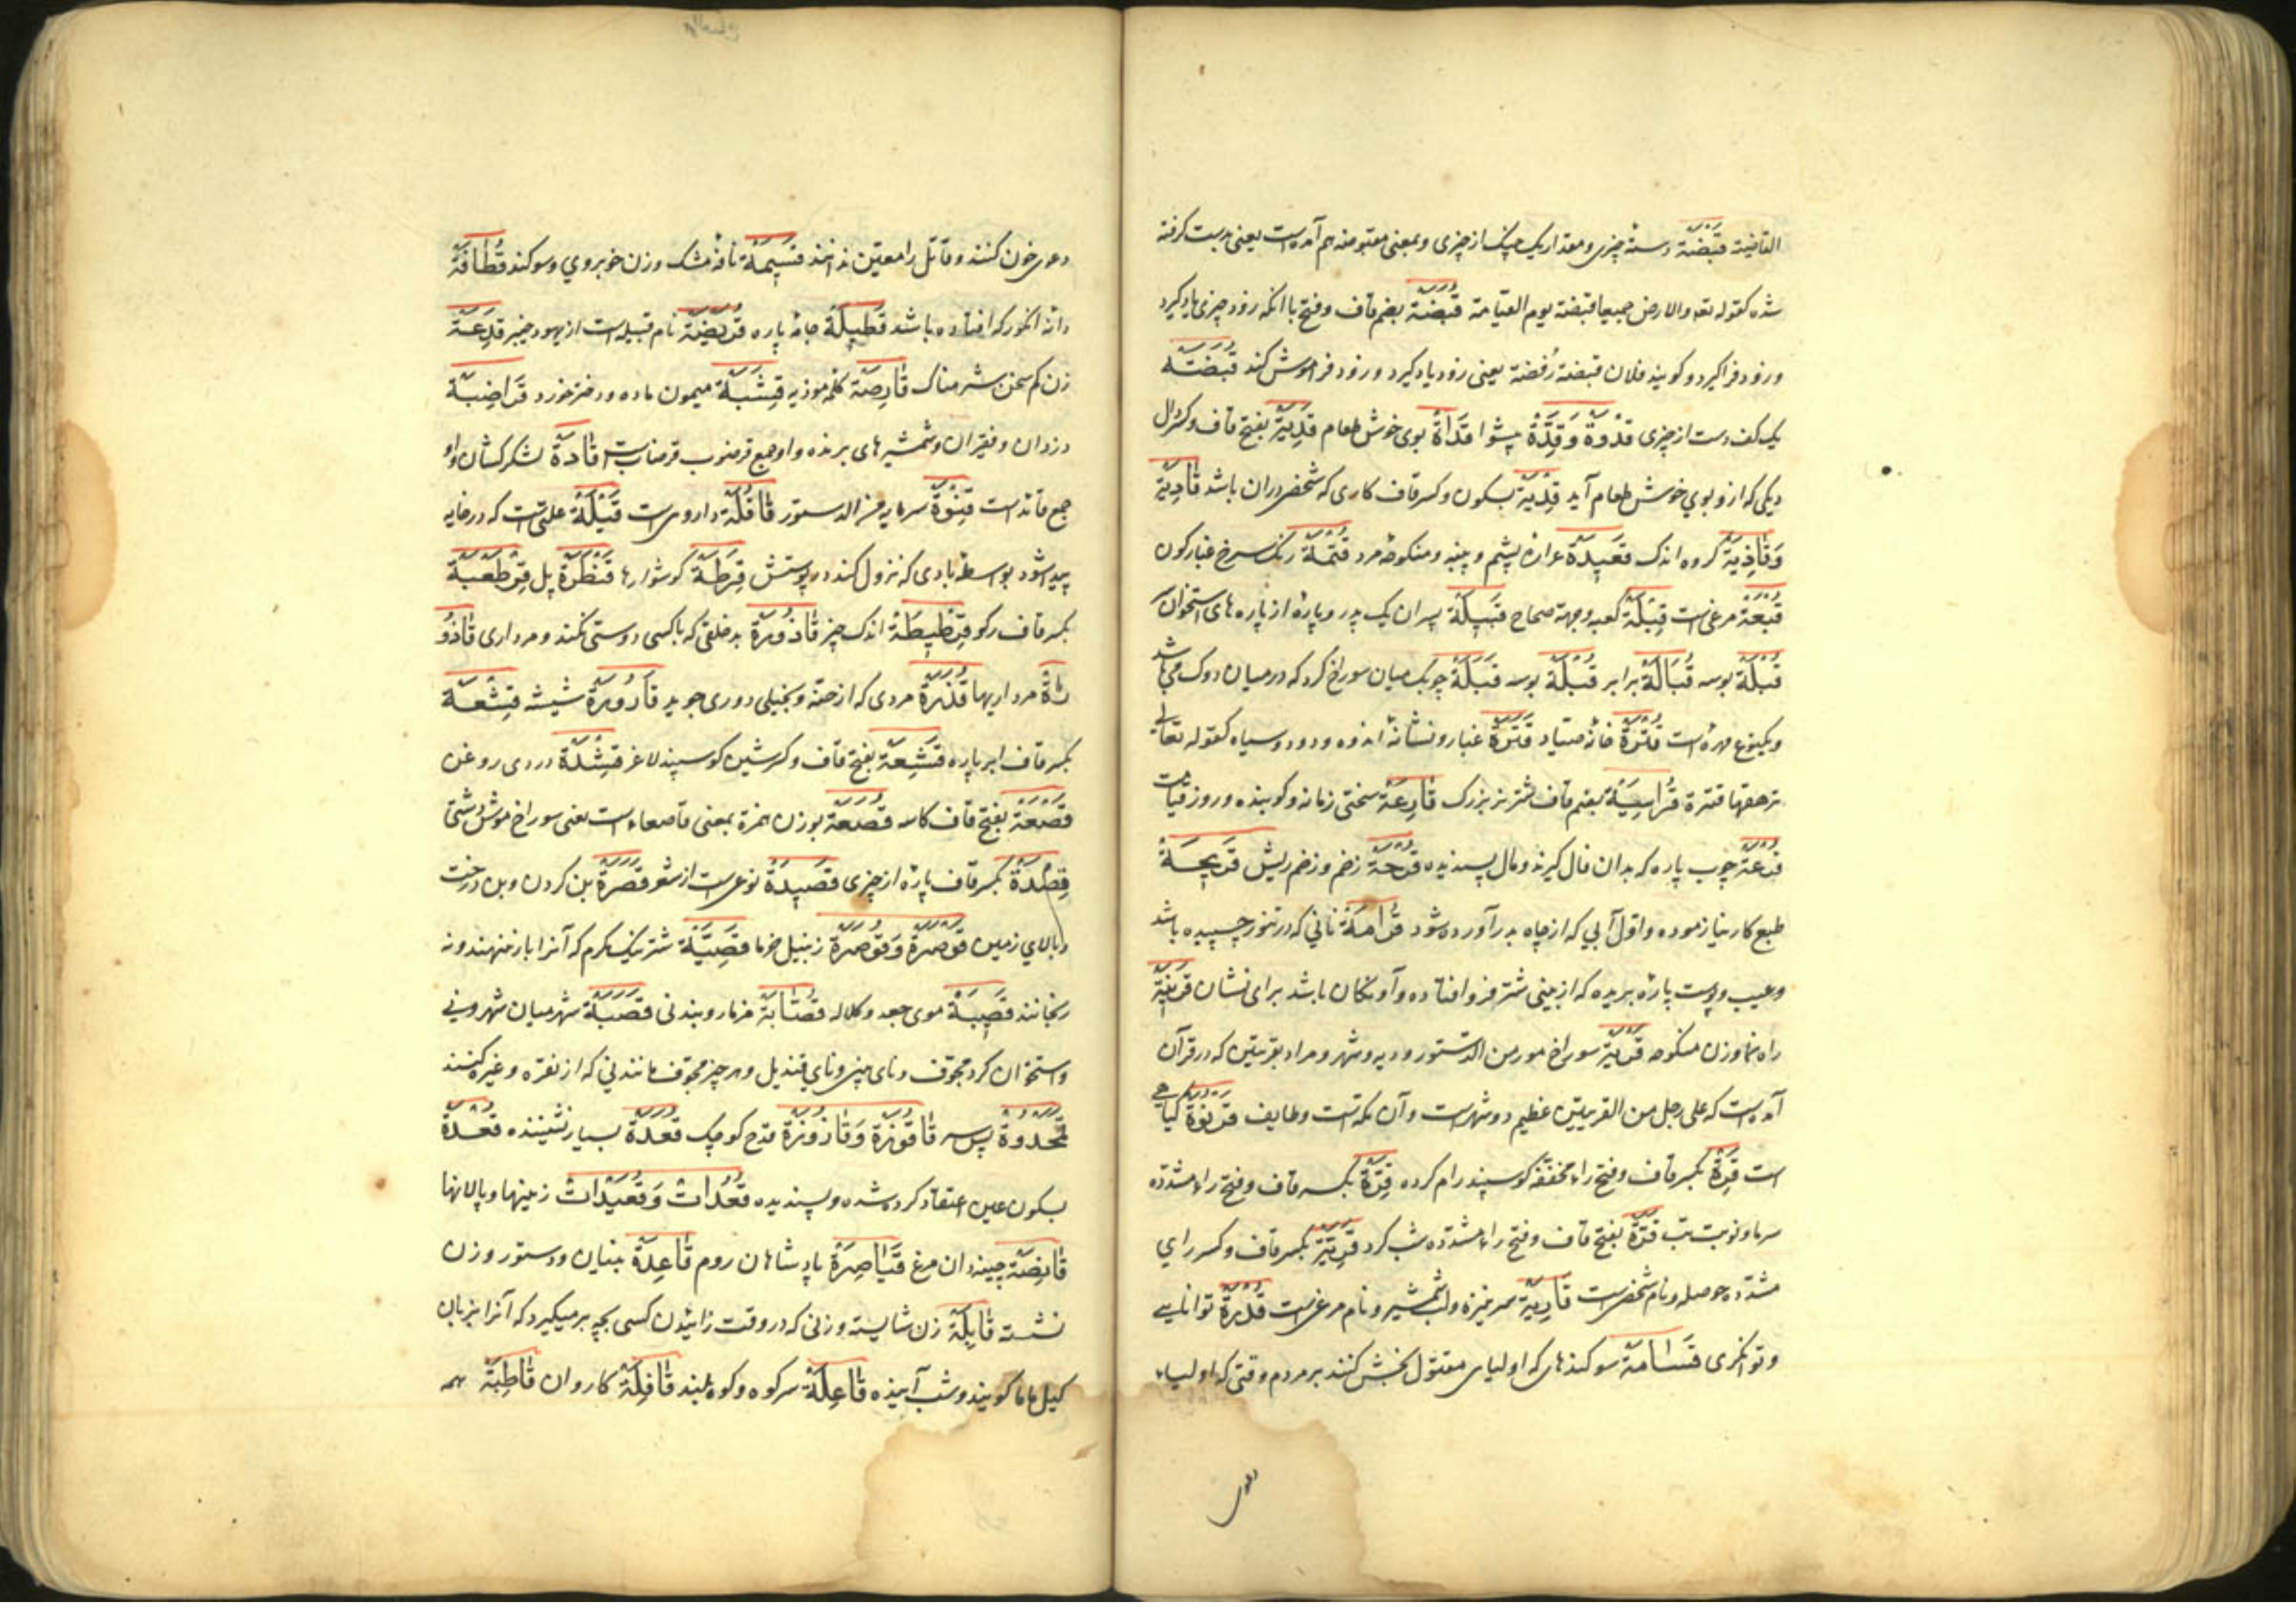 القاضیة قَبْضَة دستهٔ چیزی و مقدار یک چنک از چیزی و بمعنی مقبوضه هم آمده است یعنی بدست کرفته
شده کقوله تعه والارض جمیعا قبضته یوم القیامة قُبَضَة بضم قاف و فتح با انکه زود چیزی یاد کیرد
و زود فرا کیرد و کویند فلان قبضة رُفضة یعنی زود یاد کیرد و زود فراموش کند قُبْضَة
یک کف دست از چیزی قُدْوَة وَقِدَّة پیشوا قَدَاة بوی خوش طعام قَدِیَة بفتح قاف و کسر دال
دیکی که ازو بوی خوش طعام آید قِدْیَة بسکون و کسر قاف کاری که شخص دران باشد قَادِیَة
وَقَاذِیَة کروه اندک قَعِیدَة غرارهٔ پشم و پنبه و منکوحهٔ مرد قُتْمَة رنک سرخ غبارکون
قُبَعَة مرغی است قِبْلَة کعبه و جهة صماح قَبِیلَة پسران یک پدر و پارهٔ از پاره های استخوان سر
قُبْلَة بوسه قُبَالَة برابر قُبْلَة بوسه قَبَلَة چوبک میان سوراخ کرد که در میان دوک می باشد
و یکنوع مهره است قُتْرَة خانهٔ صیاد قَتَرَة غبار و نشانهٔ اندوه و دود و سیاه کقوله تعالی
ترهقها قترة قُرَاسِیَة بضم قاف شتر نر بزرک قَارِعَة سختی زمانه و کوبنده و روز قیامت
قُرْعَة چوب پاره که بدان فال کیرند و مال پسندیده قُرْحَة زخم و زخم ریش قَرِیحَة
طبع کار نیازموده و اول آبی که از چاه بدر آورده شود قُرَامَة نانی که در تنور چسپیده باشد
و عیب و پوست پارهٔ بریده که از بینی شتر فرو افتاده و آویکان باشد برای نشان قَرِینَة
راه نما و زن منکوحه قَرْیَة سوراخ مور من الدستور و دیه و شهر و مراد بقریتین که در قرآن
آمده است که علی رجل من القریتین عظیم دو شهرست و آن مکه است و طایف قَرْنُوَة کیاهی
است قِرَة بکسر قاف و فتح راء مخففه کوسپند رام کرده قِرَّة بکسر قاف و فتح راء مشدده
سرما و نوبت تب قَرَّة بفتح قاف و فتح راء مشدده شب کرد قِرِّیَّة بکسر قاف و کسر رای
مشدده حوصله و نام شخص است قَارِیَة سر نیزه و لب شمشیر و نام مرغی است قُدْرَة توانایی
و توانکری قَسَامَة سوکندهای که اولیای مقتول بخش کنند بر مردم وقتی که اولیاء
دعوی
دعوی خون کنند و قاتل را معین ندانند قَسِیمَة نافهٔ مشک و زن خوبروی و سوکند قُطَافَة
دانهٔ انکور که افتاده باشد قَطِیلَة جامهٔ پاره قُرَیْضَة نام قبیله است از یهود خیبر قَدِعَة
زن کم سخن شرمناک قَارِصَة کلمهٔ موذیه قِشَّبَة میمون ماده و دختر خورد قَرَاضِبَة
دزدان و فقیران و شمشیرهای برنده و او جمع قرضوب قرضاب است قَادَة لشکرکشان و او
جمع قائد است قِنْوَة سرمایه من الدستور قَاقُلَة دارویی است قَیْلَة علتی است که در خایه
پیدا شود بواسطهٔ بادی که نزول کند در پوستش قِرَطَة کوشوارها قَنْطَرَة پل قِرْطَعْبَة
بکسر قاف رکو قِنْطِیطَة اندک چیز قَاذُورَة بدخلقی که با کسی دوستی نکند و مرداری قَاذُو
رَاة مرداریها قُذَرَة مردی که از حقه و بخیلی دوری جوید قَارُورَة شیشه قِشْعَة
بکسر قاف ابر پاره قَشِعَة بفتح قاف و کسر شین کوسپند لاغر قِشْدَة دردی روغن
قَصْعَة بفتح قاف کاسه قُصَعَة بوزن همزة بمعنی قاصعاء است یعنی سوراخ موش دشتی
قِصْدَة بکسر قاف پارهٔ از چیزی قَصِیدَة نوعی است از شعر قَصَرَة بن کردن و بن درخت
و بالای زمین قَوْصَرَة وَقَوْصَرَّة زنبیل خرما قَصِیَّة شتر نیک کرم که آنرا بار ننهند و نه
رنجانند قَصِیبَة موی جعد و کلاله قُصَّابَة مزمار و بند نی قَصَبَة شهر میان شهر و نی
و استخوان کرد مجوف و نای بینی و نای قندیل و هر چیز مجوف مانند نی که از نقره و غیره کنند
قَمَحْدُوَة پس سر قَاقُوزَة وَقَازُوزَة قدح کوچک قُعَدَة بسیار نشیننده قُعْدَة
بسکون عین اعتقاد کرده شده و پسندیده قُعْدَات وَقُعَیْدَات زینها و پالانها
قَانِصَة چینه دان مرغ قَیَاصِرَة پادشاهان روم قَاعِدَة بنیان و دستور و زن
نشسته قَابِلَة زن شایسته و زنی که در وقت زائیدن کسی بچه بر میکیرد که آنرا بزبان
کیل ماما کویند و شب آینده قَاعِلَة سر کوه و کوه بلند قَافِلَة کاروان قَاطِبَة همه